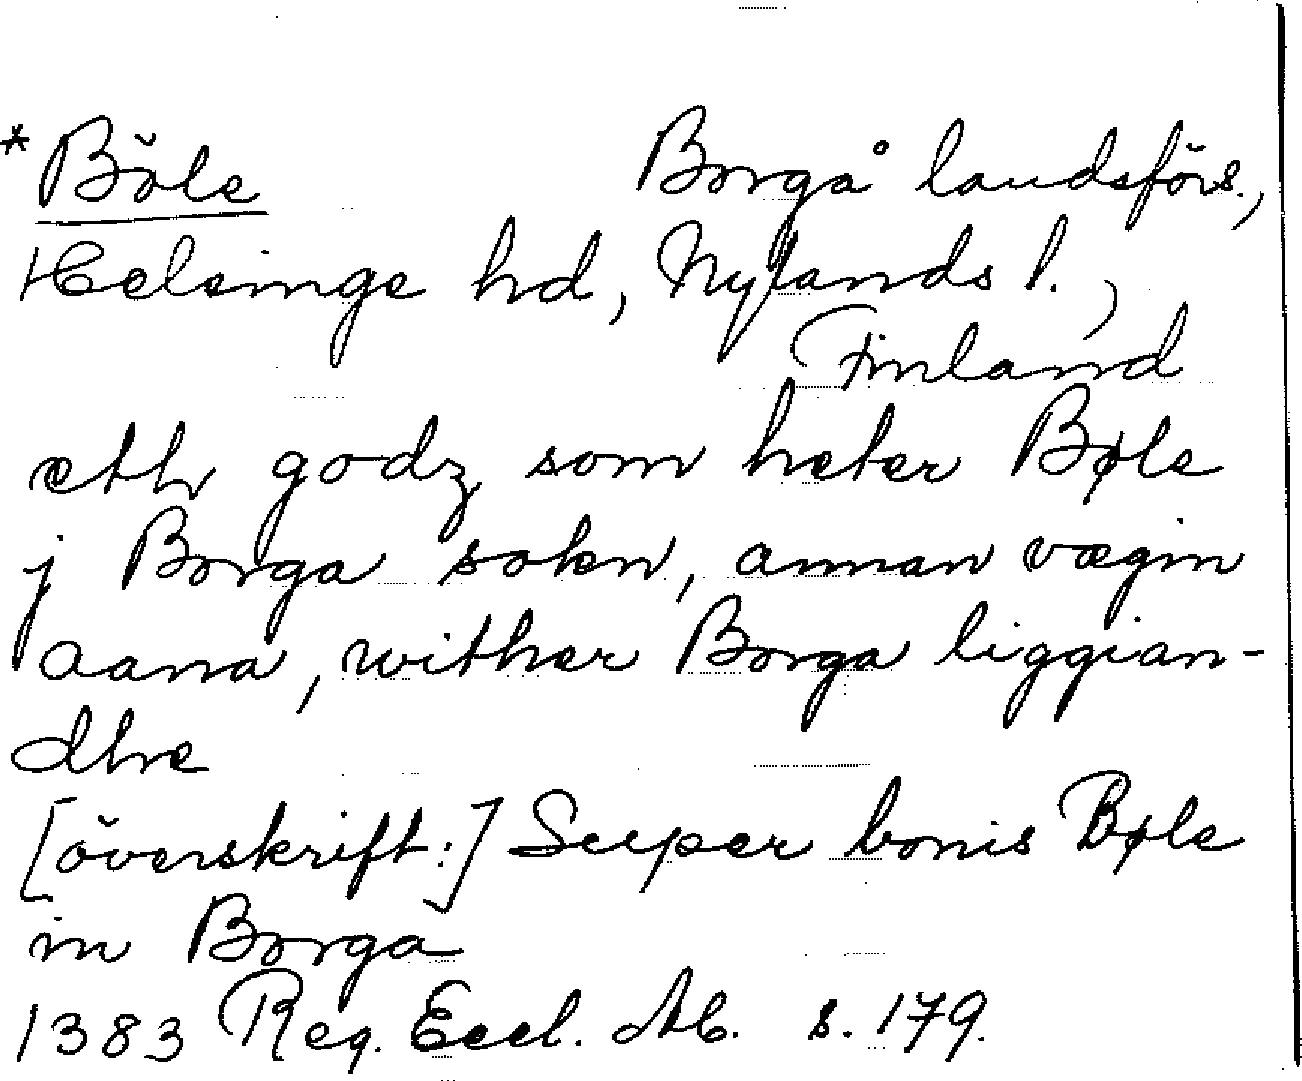 *Böle Borgå landsförs.,
Helsinge hd, Nylands l.,
Finland
etth godz som heter Bøle
j Borga sokn, annan vægin
aana, wither Borga liggian-
dhe
[överskrift:] Super bonis Bøle
in Borga
1383 Reg. Eccl. Ab. s. 179.